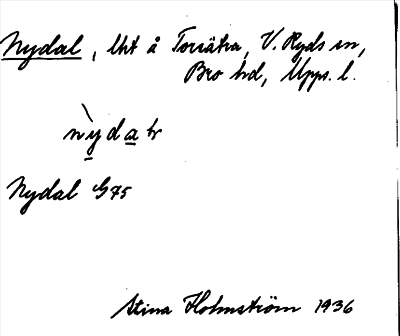 Nydal, lht å Toresta, V. Ryds sn,
Bro hd, Upps. l.
nỳdaɫ
Nydal G 75
Stina Holmström 1936